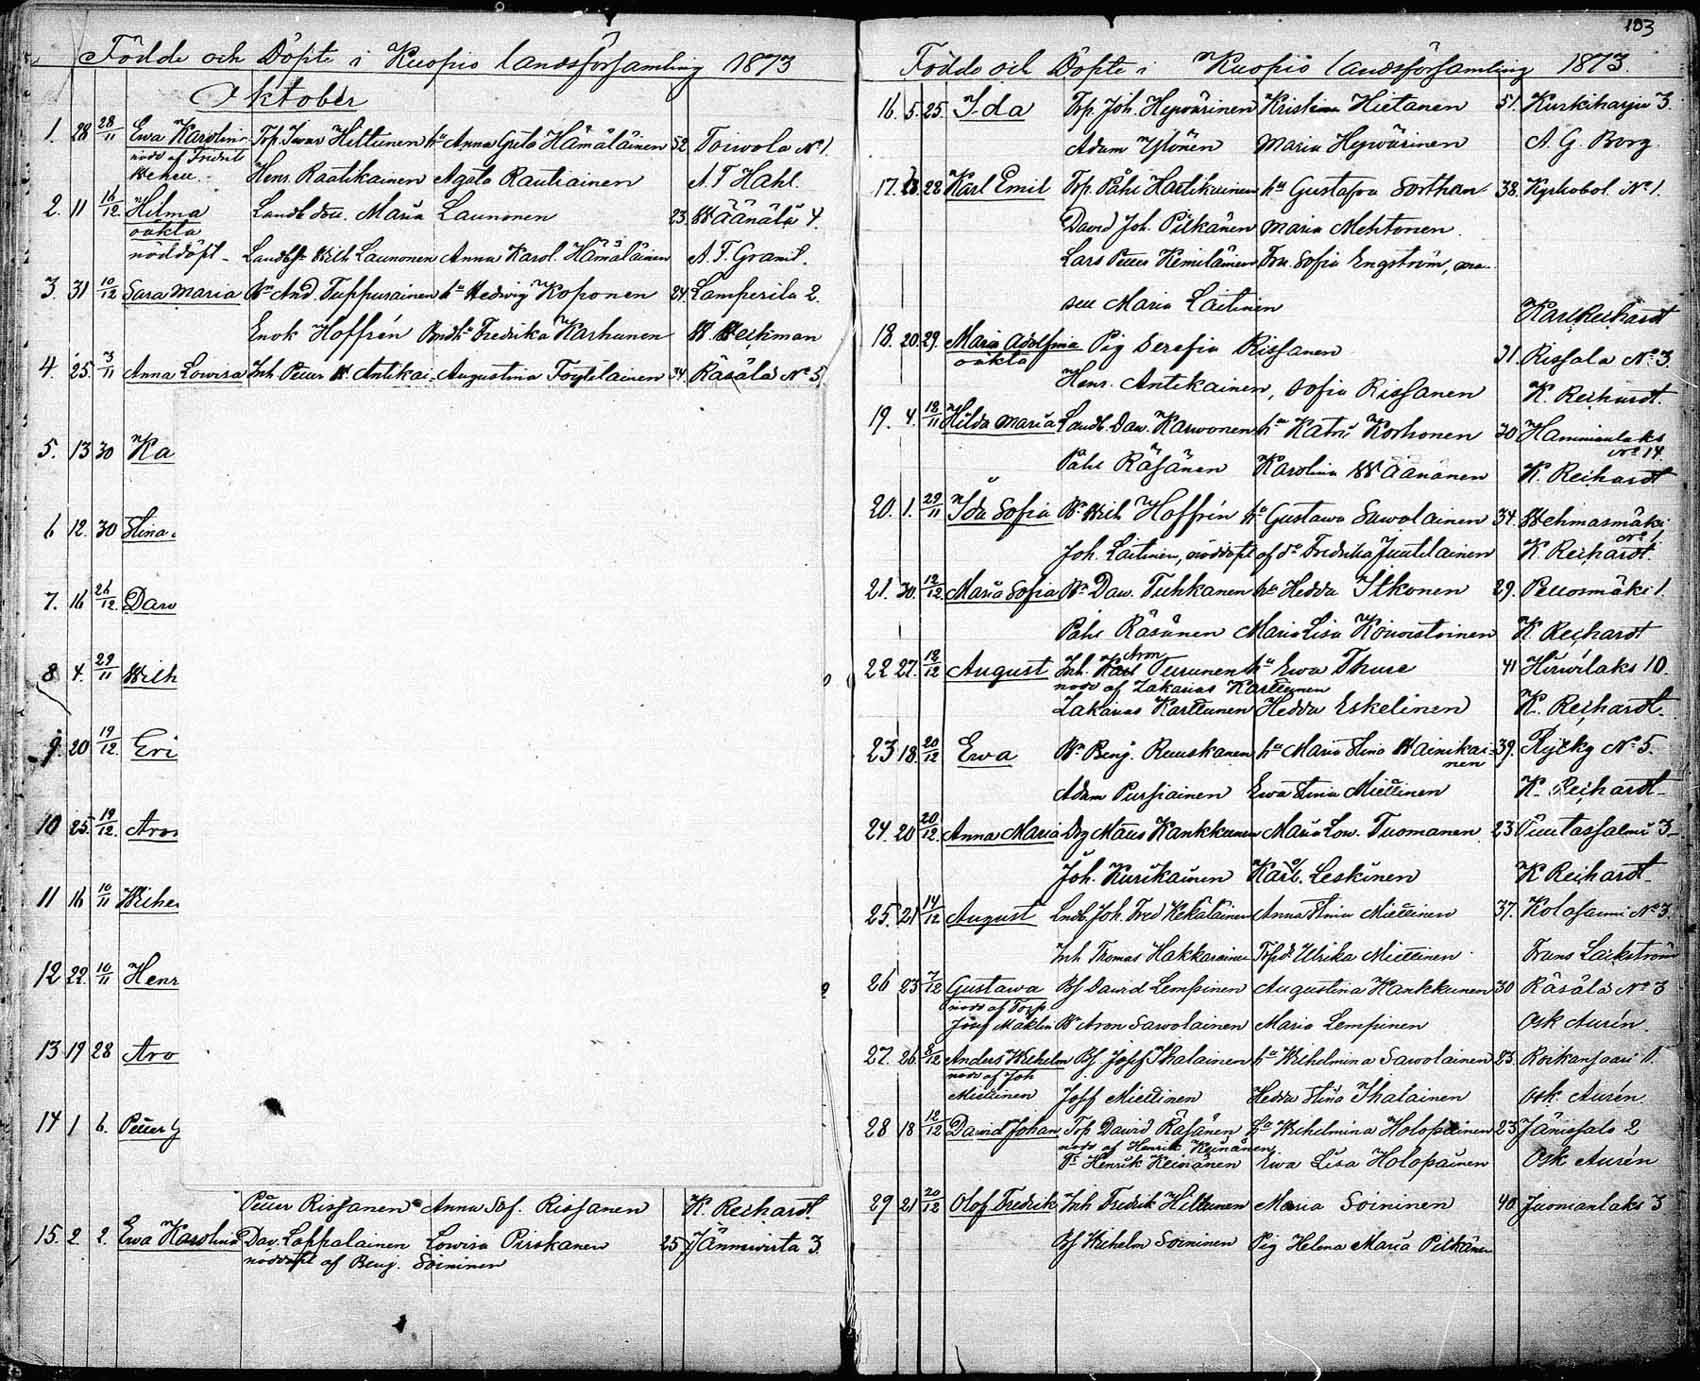 Födde och Döpte i Kuopio landsförsamling 1873
Oktober
1. 28 28/11 Ewa Karolina Trp. Hiltunen hu Anna Greta Hämäläinen 52 Toiwola No 1.
nöd. af Fredrik
Henr. Raatikainen Agata Rautiainen A. F. Hahl.
2. 11 16/12 Hilma Maria Launonen 23 Wäänälä 4.
oäkta
nöddöpt. Wilh Launonen Anna Karol. Hämäläinen A. F. Granit.
3. 31 10/12 Sara Maria And. Tuppurainen hu Hedwig Koponen 24 Lamperila 2.
Enok Hoffrén Fredrika Karhunen
4. 25. 3/11 Anna Lowisa Inh Petter Antikai- Augustina 34 Räsälä No 5.
5. 13 30 Ka
6 12. 30 Stina
7. 16 26/12 Daw
8 4. 29/11 Wilh
9. 20 19/12 Eri
10 25. 19/12. Aro
11 16 10/11 Wilhe
12 22. 10/11 Henr
13 19 28 Aro
14 1 6. Petter G
Petter Rissanen Anna Sof. Rissanen K. Reihardt.
15. 2. 2. Ewa Karolina Dav. Lappalainen Lowisa Pirskanen 25 Jännewirta 3.
nöddöpt af Beng. Soininen
103
Födde och Döpte i Kuopio landsförsamling 1873.
16. 5. 25. Ida Trp. Joh. Hyvärinen Kristina Hietanen 51. Kurkiharju 3
Adam Ylönen Maria Hyvärinen A. G. Borg
17. 22 Karl Emil Trp. Påhl Hartikainen hu Gustafva Sorthan 38. No 1.
David Joh. Pitkänen Maria Mehtonen
Lars Petter Kemiläinen Sofia Engström,
Maria Laitinen Karl Reihardt
18. 20. 29. Maria Adolfina Pig Serefia Rissanen 31. Rissala No 3.
oäkta
Henr. Antikainen, Sofia Rissanen K. Reihardt.
19. 4. 12/11 Hilda Maria Landb. Dav. Karvonen hu Katri Korhonen 30 Hamminlaks
No 14.
Påhl Räsänen Karolina Wäänänen K. Reihardt
20. 1. 29/11 Ida Sofia Wilh Hoffrén hu Gustawa Sawolainen 34. Wehmasmäki
No 1
Joh. Laitinen, nöddöpt af Fredrika Juutilainen K Reihardt.
21. 30. 12/12. Maria Sofia Dav. Tuhkanen hu Hedda Itkonen 29. Petosmäki 1.
Påhl Räsänen Maria Lisa K Reihardt
22 27. 12/12 August Inh. Aron Turunen hu Ewa Thure 41 Hirwilaks 10.
nöd. af Zakarias Karttunen
Zakarias Karttunen Hedda Eskelinen K. Reihardt.
23 18. 20/12 Ewa Benj. Ruuskanen hu Maria Stina Wainikai- 39. Rytky No 5.
nen
Adam Pursiainen Ewa Stina Miettinen K. Reihardt
24. 20 20/12. Anna Maria Drg Måns Kankkunen Maria Low. Tuomanen 23 Puutossalmi 3
Joh. Kurikainen Karl. Leskinen K Reihardt
25. 21 14/12 August Landb. Joh. Fred Kekäläinen Anna Stina Miettinen 37. Kolasaari No 3.
Inh Thomas Hakkarainen Ulrika Miettinen Frans Lackström
26 23 7/12 Gustawa Bf David Lempinen Augustina Kankkunen 30 Räsälä No 3
nöd. af Torp
Josef Maklin Aron Sawolainen Maria Lempinen Osk Aurén
27. 26. 8/12 Anders Wilhelm Bf. Josef Ihalainen hu Wilhelmina Sawolainen 23. Roikansaari 1.
nöd af Joh
Miettinen Josef Miettinen Hedda Stina Ihalainen Osk. Aurén.
28 18 12/12 David Johan Trp David Räsänen hu Wilhelmina Holopainen 23 Jänissalo 2
nöd af Henrik Keinänen
Henrik Keinänen Ewa Lisa Holopainen Osk Aurén
29 21 20/12 Olof Fredrik Inh Fredrik Hiltunen Maria Soininen 40 Juonionlaks 3
Bf Wilhelm Soininen Pig Helena Maria Pitkänen